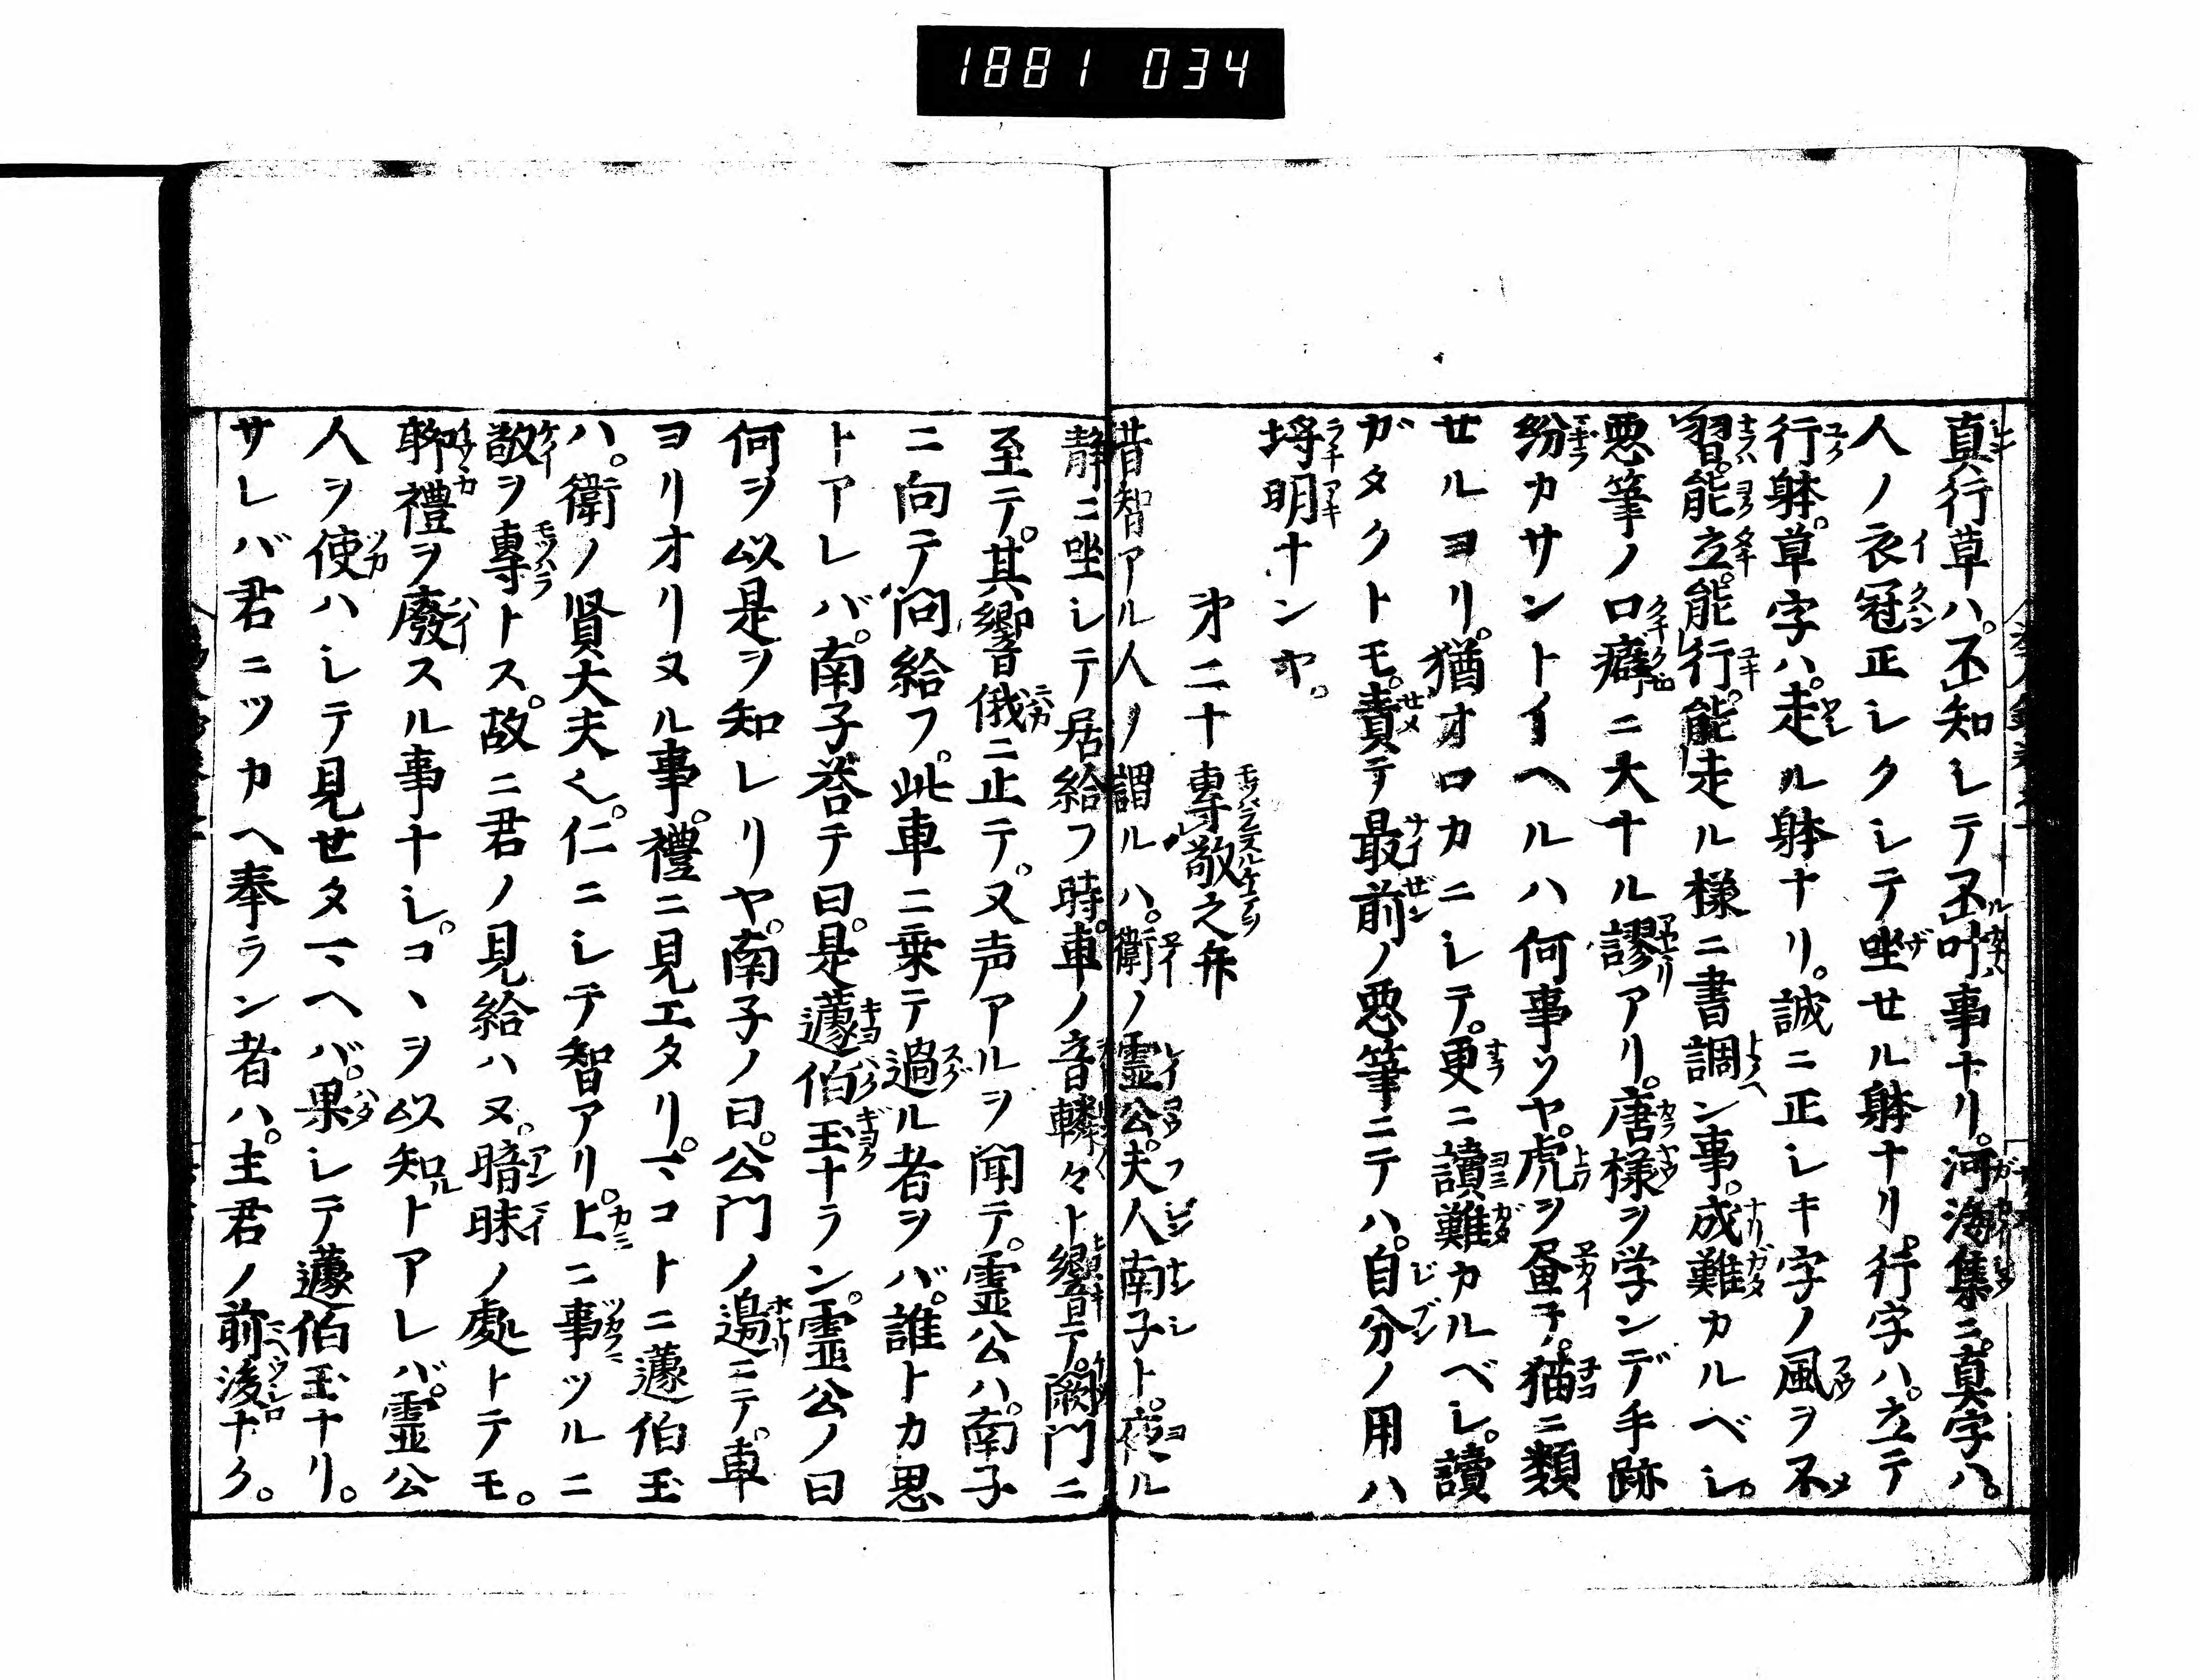 1881 034
真行草ハ。不知シテ不叶事ナリ。河海集ニ。真字ハ。
人ノ衣冠正シクシテ坐セル躰ナリ。行字ハ。立テ
行躰。草字ハ。走ル躰ナリ。誠ニ正シキ字ノ風ヲ不
習。能立。能行。能走ル様ニ書調ン事。成難カルベシ。
悪筆ノ口癖ニ大ナル謬アリ。唐様ヲ学ンデ手跡
紛カサントイヘルハ何事ソヤ。虎ヲ画テ。猫ニ類
セルヨリ。猶オロカニシテ。更ニ讀難カルベシ。讀
ガタクトモ。責テ最前ノ悪筆ニテハ。自分ノ用ハ
埒明ナンヤ。
才二十 專敬之弁
昔智アル人ノ謂ルハ。衛ノ霊公。夫人南子ト。夜ル
静ニ坐シテ居給フ時。車ノ音轔々ト響テ。闕門ニ
至テ。其響俄ニ止テ。又声アルヲ聞テ。霊公ハ。南子
ニ向テ問給フ。此車ニ乗テ過ル者ヲバ。誰トカ思
トアレバ。南子荅テ曰。是蘧伯玉ナラン。霊公ノ曰
何ヲ以是ヲ知レリヤ。南子ノ曰。公門ノ邉ニテ。車
ヨリオリヌル事。禮ニ見エタリ。マコトニ蘧伯玉
ハ。衛ノ賢大夫也。仁ニシテ智アリ。上ニ事ツルニ
敬ヲ專トス。故ニ君ノ見給ハヌ。暗昧ノ處トテモ。
聊禮ヲ廢スル事ナシ。コヽヲ以知ルトアレバ。霊公
人ヲ使ハシテ見セタマヘバ。果シテ蘧伯玉ナリ。
サレバ君ニツカヘ奉ラン者ハ。主君ノ前後ナク。